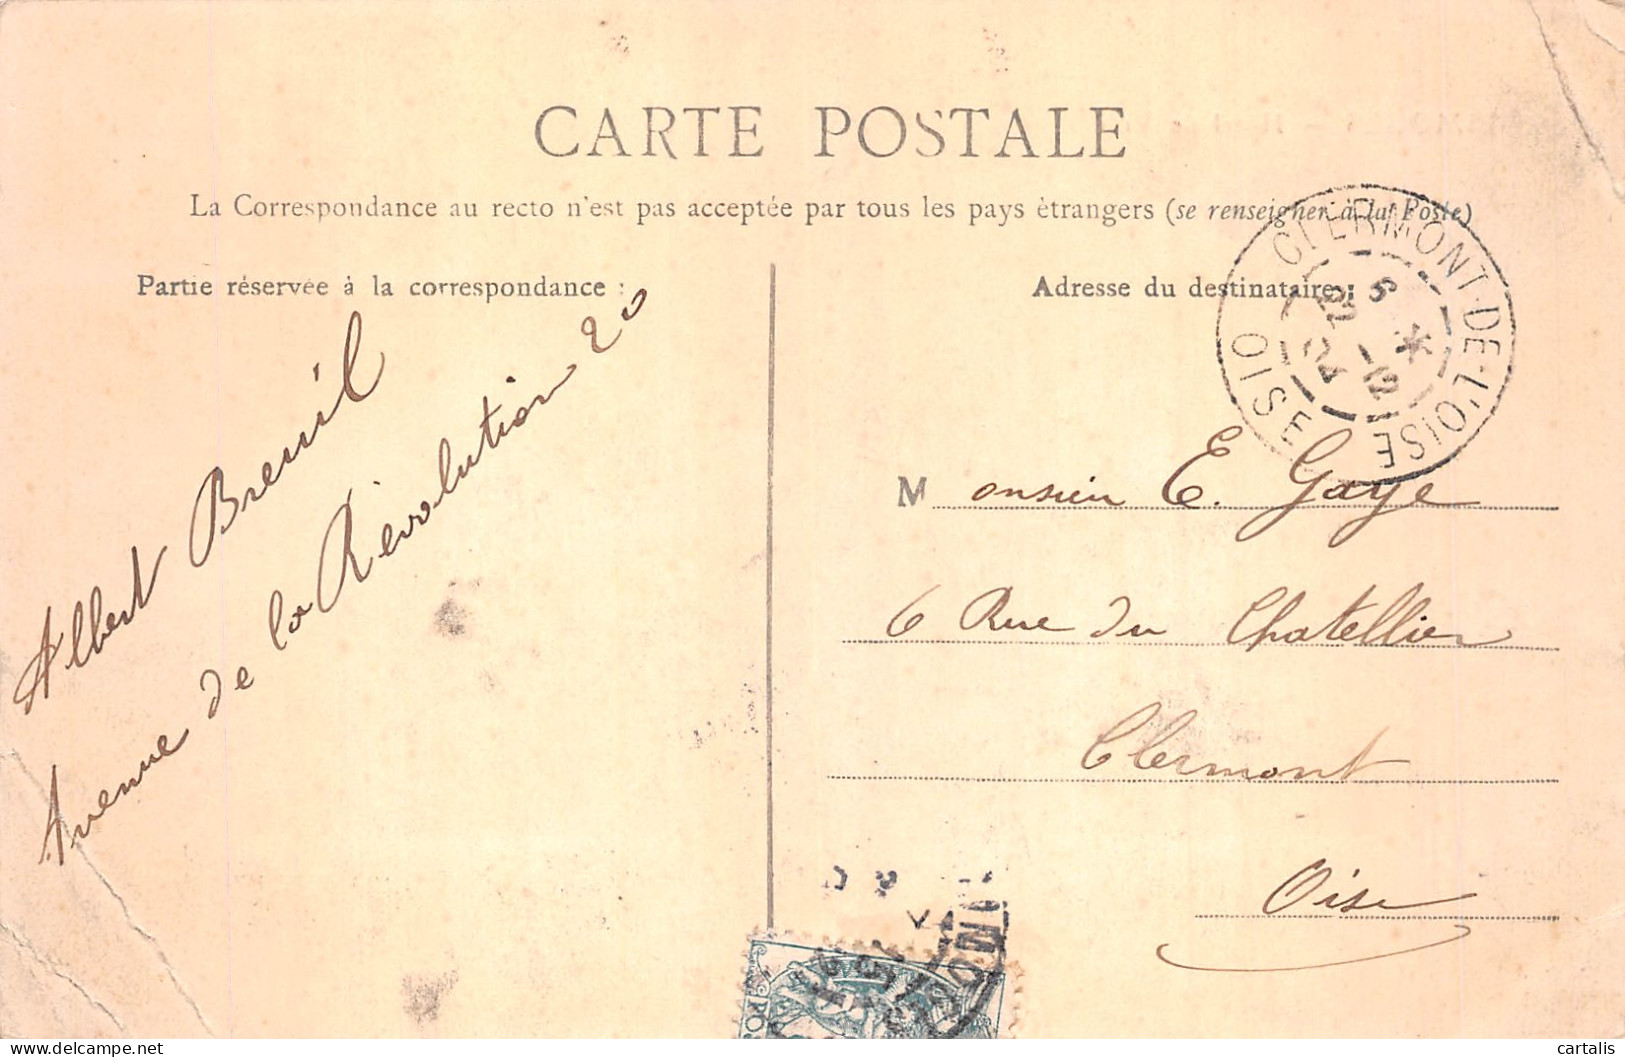 CARTE POSTALE
La Correspondance au recto n'est pas acceptée par tous les pays étrangers (se renseigner à la Poste)
Partie réservée à la correspondance :
Adresse du destinataire :
CLERMONT-DE-L'OISE
OISE
Albert Breuil
Avenue de la Révolution 20
Monsieur E. Gaye
6 Rue du Chatellier
Clermont
Oise
cartalis